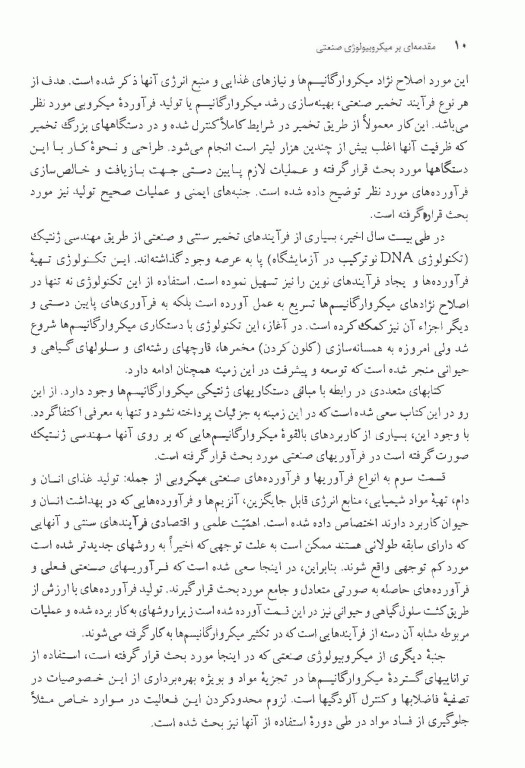 ۱۰ مقدمه‌ای بر میکروبیولوژی صنعتی
این مورد اصلاح نژاد میکروارگانیسم‌ها و نیازهای غذایی و منبع انرژی آنها ذکر شده است. هدف از
هر نوع فرآیند تخمیر صنعتی، بهینه‌سازی رشد میکروارگانیسم یا تولید فرآوردهٔ میکروبی مورد نظر
می‌باشد. این کار معمولاً از طریق تخمیر در شرایط کاملاً کنترل شده و در دستگاههای بزرگ تخمیر
که ظرفیت آنها اغلب بیش از چندین هزار لیتر است انجام می‌شود. طراحی و نحوهٔ کار با این
دستگاهها مورد بحث قرار گرفته و عملیات لازم پایین دستی جهت بازیافت و خالص‌سازی
فرآورده‌های مورد نظر توضیح داده شده است. جنبه‌های ایمنی و عملیات صحیح تولید نیز مورد
بحث قرار گرفته است.
در طی بیست سال اخیر، بسیاری از فرآیندهای تخمیر سنتی و صنعتی از طریق مهندسی ژنتیک
(تکنولوژی DNA نوترکیب در آزمایشگاه) پا به عرصه وجود گذاشته‌اند. این تکنولوژی تهیهٔ
فرآورده‌ها و یجاد فرآیندهای نوین را نیز تسهیل نموده است. استفاده از این تکنولوژی نه تنها در
اصلاح نژادهای میکروارگانیسم‌ها تسریع به عمل آورده است بلکه به فرآوری‌های پایین دستی و
دیگر اجزاء آن نیز کمک کرده است. در آغاز، این تکنولوژی با دستکاری میکروارگانیسم‌ها شروع
شد ولی امروزه به همسانه‌سازی (کلون کردن) مخمرها، قارچهای رشته‌ای و سلولهای گیاهی و
حیوانی منجر شده است که توسعه و پیشرفت در این زمینه همچنان ادامه دارد.
کتابهای متعددی در رابطه با مبانی دستکاریهای ژنتیکی میکروارگانیسم‌ها وجود دارد. از این
رو در این کتاب سعی شده است که در این زمینه به جزئیات پرداخته نشود و تنها به معرفی اکتفا گردد.
با وجود این، بسیاری از کاربردهای بالقوهٔ میکروارگانیسم‌هایی که بر روی آنها مهندسی ژنتیک
صورت گرفته است در فرآوریهای صنعتی مورد بحث قرار گرفته است.
قسمت سوم به انواع فرآوریها و فرآورده‌های صنعتی میکروبی از جمله: تولید غذای انسان و
دام، تهیهٔ مواد شیمیایی، منابع انرژی قابل جایگزین، آنزیم‌ها و فرآورده‌هایی که در بهداشت انسان و
حیوان کاربرد دارند اختصاص داده شده است. اهمّیّت علمی و اقتصادی فرآیندهای سنتی و آنهایی
که دارای سابقه طولانی هستند ممکن است به علت توجهی که اخیراً به روشهای جدیدتر شده است
مورد کم توجهی واقع شوند. بنابراین، در اینجا سعی شده است که فرآوریهای صنعتی فعلی و
فرآورده‌های حاصله به صورتی متعادل و جامع مورد بحث قرار گیرند. تولید فرآورده‌های با ارزش از
طریق کشت سلول گیاهی و حیوانی نیز در این قسمت آورده شده است زیرا روشهای به کار برده شده و عملیات
مربوطه مشابه آن دسته از فرآیندهایی است که در تکثیر میکروارگانیسم‌ها به کار گرفته می‌شوند.
جنبهٔ دیگری از میکروبیولوژی صنعتی که در اینجا مورد بحث قرار گرفته است، استفاده از
تواناییهای گستردهٔ میکروارگانیسم‌ها در تجزیهٔ مواد و بویژه بهره‌برداری از این خصوصیات در
تصفیهٔ فاضلابها و کنترل آلودگیها است. لزوم محدودکردن این فعالیت در موارد خاص مثلاً
جلوگیری از فساد مواد در طی دورهٔ استفاده از آنها نیز بحث شده است.